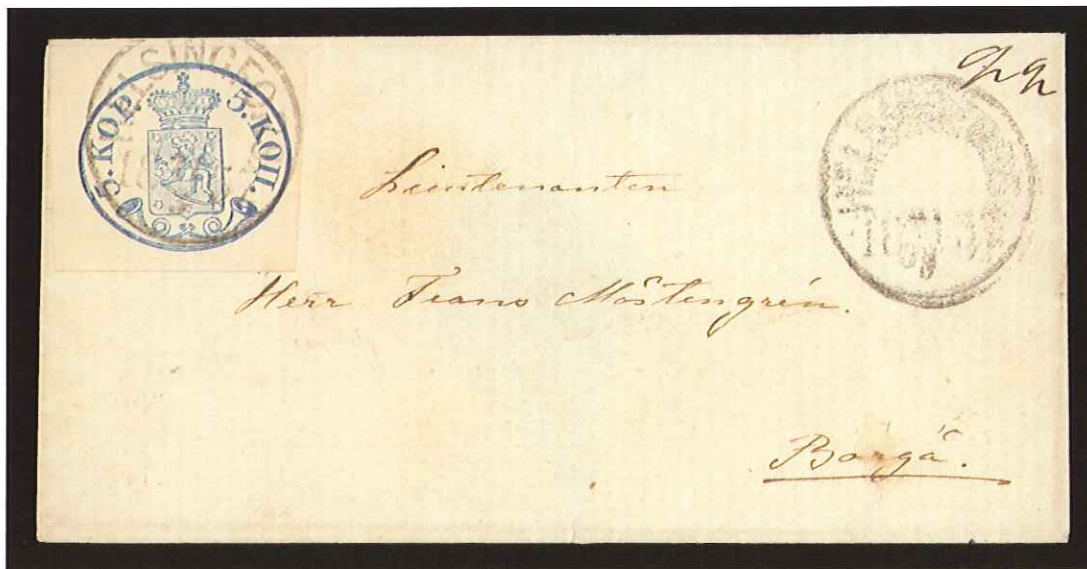 HELSINGFO
5. KOP. 5. КОП.
Lieutenanten
Herr Frans Möstengrén.
Borgå.